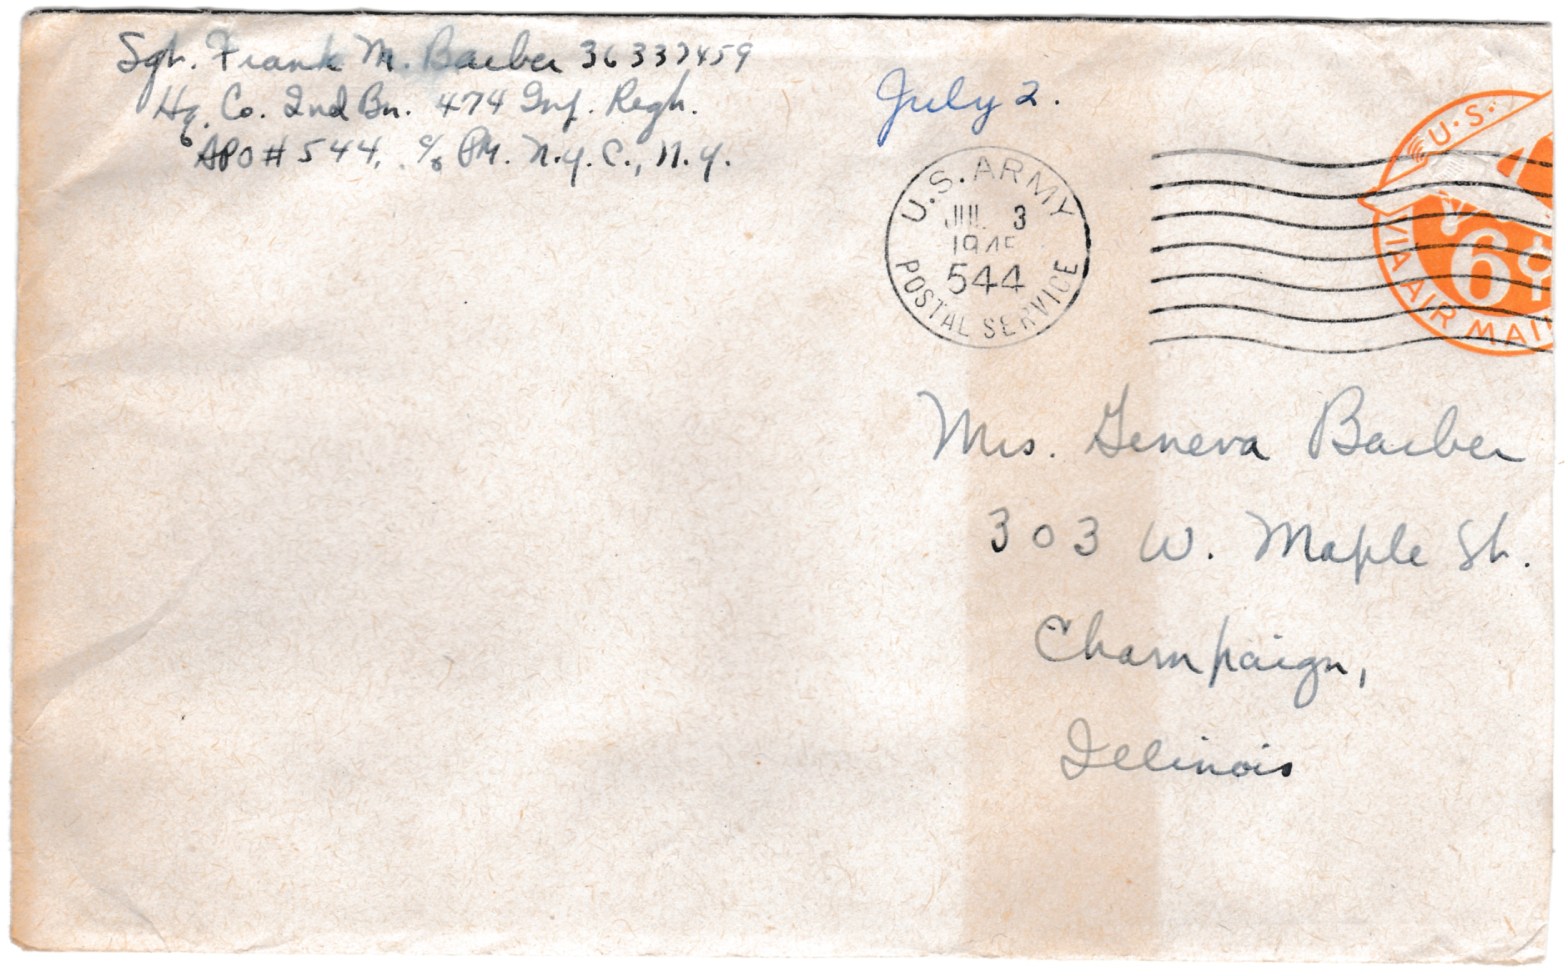 Sgt. Frank M. Barber 36337459
Hq. Co. 2nd Bn. 474 Inf. Regt.
APO # 544, c/o PM. N.Y.C., N.Y.
July 2.
U.S. ARMY
JUL 3
1945
544
POSTAL SERVICE
U.S.
6¢
VIA AIR MAIL
Mrs. Geneva Barber
303 W. Maple St.
Champaign,
Illinois